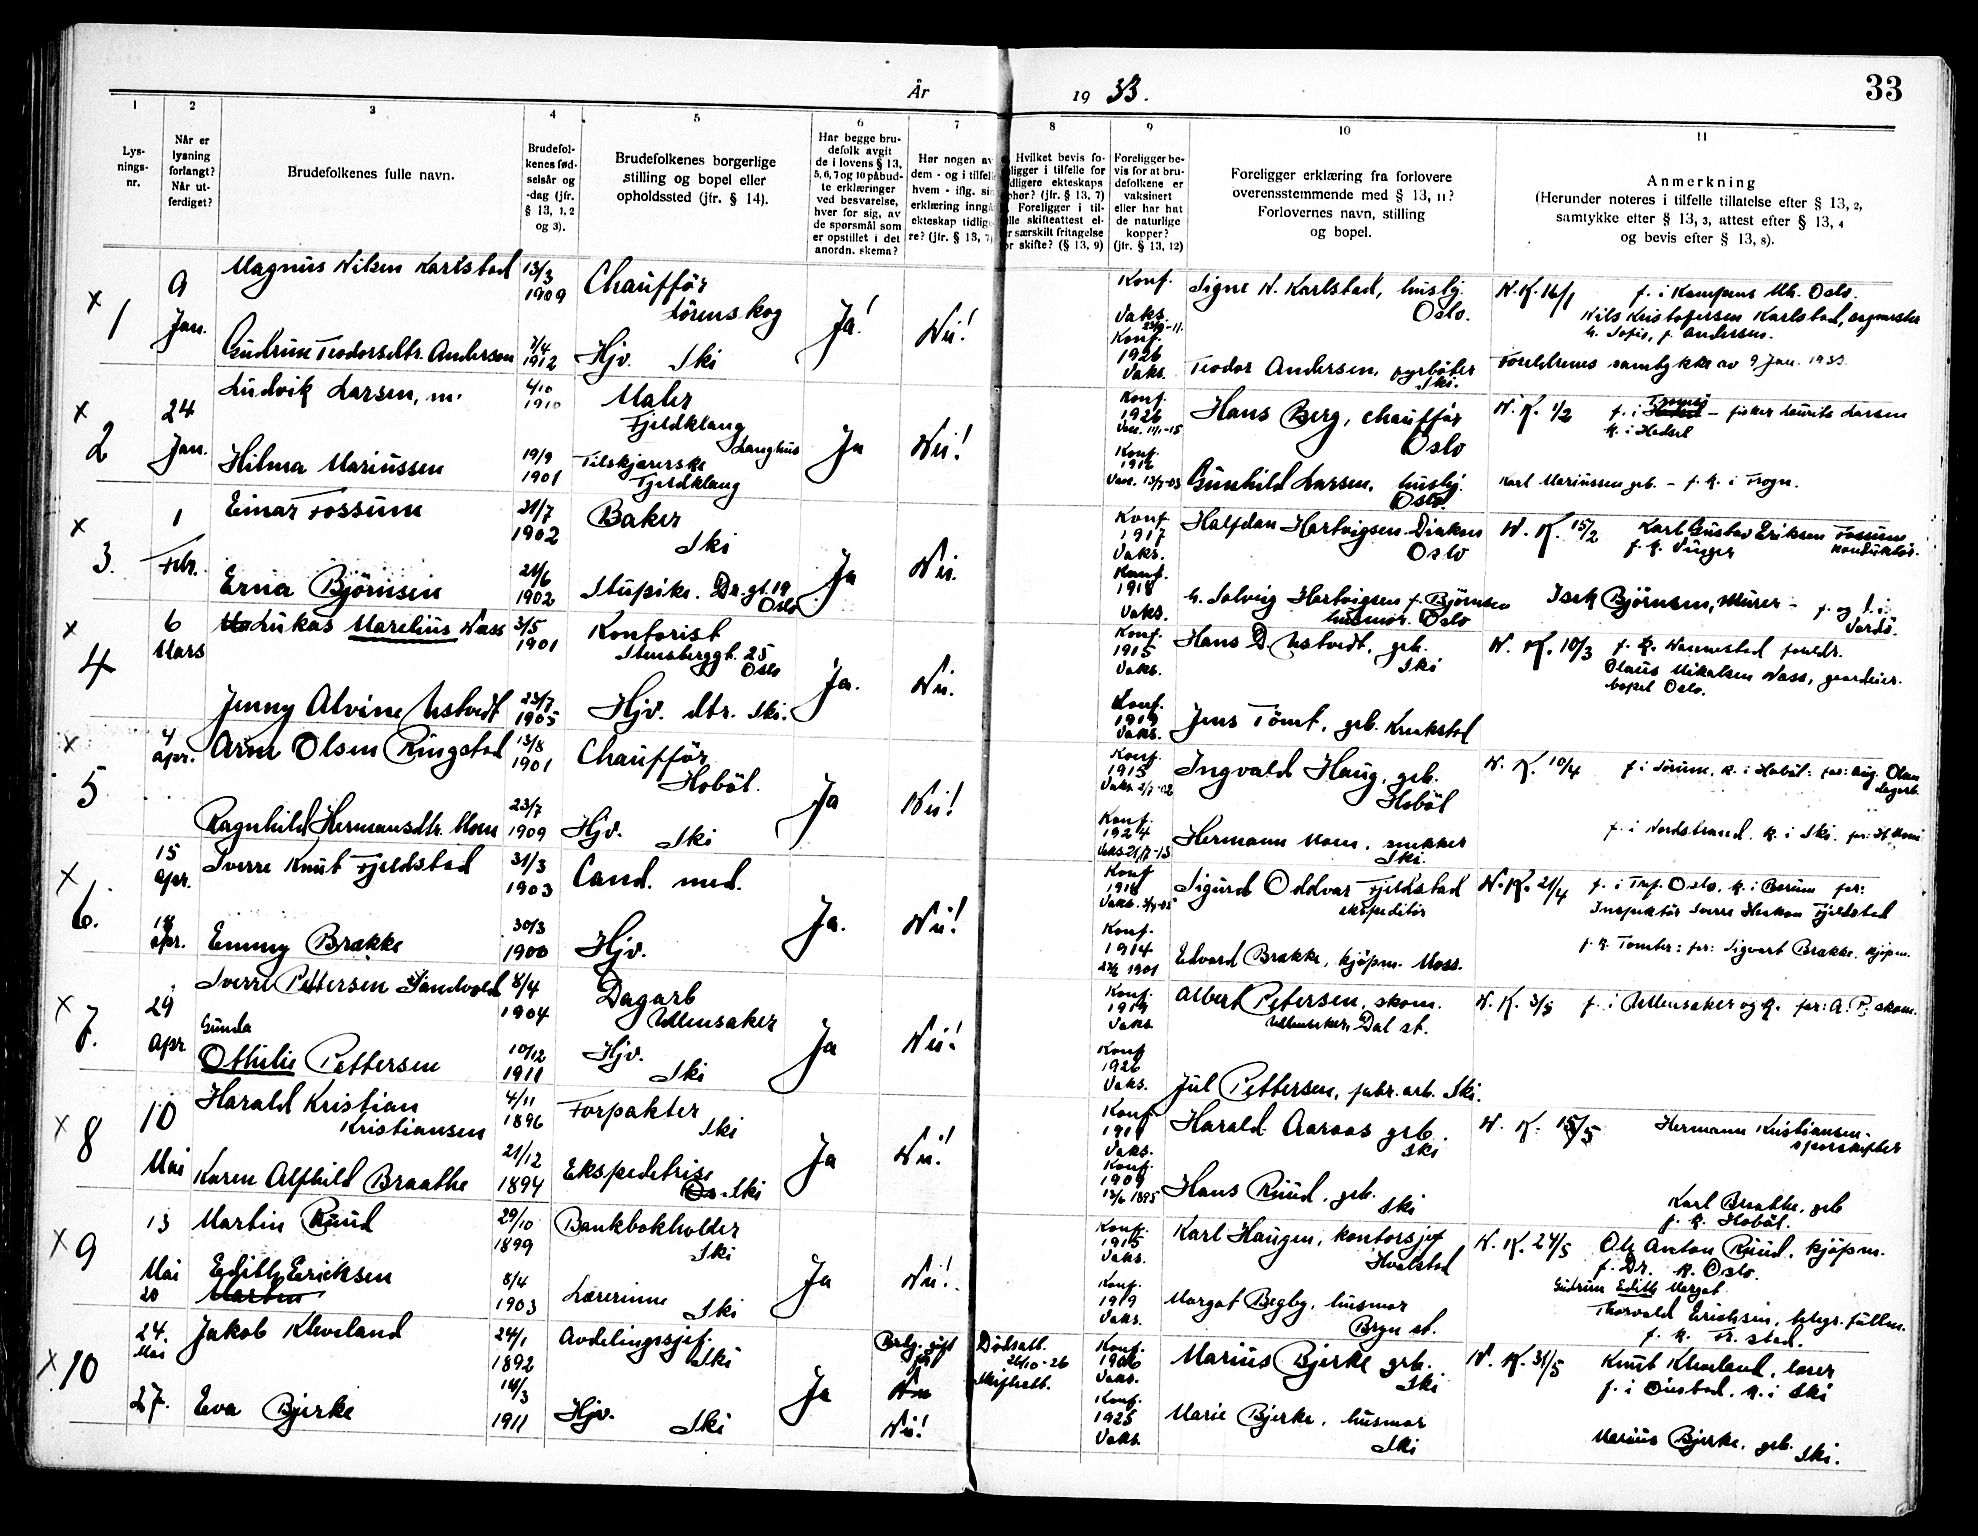 År 1933.
33
1 2 3 4 5 6 7 8 9 10 11
Lys-
nings-
nr.
Når er
lysning
forlangt?
Når ut-
ferdiget?
Brudefolkenes fulle navn.
Brudefol-
kenes fød-
selsår og
-dag (jfr.
§ 13, 1, 2
og 3).
Brudefolkenes borgerlige
stilling og bopel eller
opholdssted (jfr. § 14).
Har begge bru-
defolk avgit
de i lovens § 13,
5, 6, 7 og 10 påbud-
te erklæringer
ved besvarelse,
hver for sig, av
de spørsmål som
er opstillet i det
anordn. skema?
Har nogen av
dem - og i tilfelle
hvem - iflg. sin
erklæring inngå
ekteskap tidlige-
re? (jfr. § 13, 7)
Hvilket bevis fo-
religger i tilfelle for
tidligere ekteskaps
ophør? (jfr. § 13, 7)
Foreligger i til-
felle skifteattest el-
er særskilt fritagelse
for skifte? (§ 13, 9)
Foreligger be-
vis for at bru-
defolkene er
vaksinert
eller har hat
de naturlige
kopper?
(jfr. § 13, 12)
Foreligger erklæring fra forlovere
overensstemmende med § 13, 11?
Forlovernes navn, stilling
og bopel.
Anmerkning
(Herunder noteres i tilfelle tillatelse efter § 13, 2,
samtykke efter § 13, 3, attest efter § 13, 4
og bevis efter § 13, 8).
x 1 9 Jan. Magnus Nilsen Karlstad 13/3 1909 Chauffør Lørenskog Ja! Nei! Konf. Vaks. Signe N. Karlstad, husbj. Oslo. N. K. 16/1 f. i Kampens Mh. Oslo.
Nils Kristofersen Karlstad,
h. Sofie, f. Andersen.
Gudrun Teodorsdtr. Andersen 7/4 1912 Hjv. Ski Konf. 1926 Vaks. Teodor Andersen, fyrbøter Ski. Foreldrenes samtykke av 9 Jan. 1933
x 2 24 Jan. Ludvik Larsen, m. 4/10 1910 Maler Fjeldklang Langhus Ja Nei! Konf. 1926 Hans Berg, chauffør Oslo N. K. 1/2 f. i Tromsø - fisker Laurits Larsen
k. i Hadsel
Hilma Mariussen 19/9 1901 Tilskjærerske Fjeldklang Konf. 1916 Gunhild Larsen, husbj. Oslo. Karl Mariussen grb. - f. k. i Frogn.
x 3. 1 Febr. Einar Fossum 31/7 1902 Baker Ski Ja Nei. Konf 1917 Vaks. Halfdan Hartvigsen Diakon Oslo N. K. 15/2 Karl Gustav Eriksen Fossum konduktør.
f. k. Vinger
Erna Bjørnsen 21/6 1902 Stupike. Dr. gt. 19 Oslo Konf. 1918 Vaks. h. Solveig Hartvigsen f. Bjørnsen husmor. Oslo Isak Bjørnsen, Murer - f. og k. i Vardø.
x 4 6 Mars Lukas Marelius Nass 3/5 1901 Kontorist Stensberggt. 25 Oslo Ja. Nei. Konf. 1915 Vaks. Hans D. Ustvedt, grb. Ski N. K. 10/3 f. k. Nannestad foreldr.
Olaus Mikalsen Nass, gaardeier.
bopel Oslo.
Jenny Alvine Ustvedt 23/7 1905 Hjv. dtr. Ski. Konf. 1919 Vaks. Jens Tømt, grb. Kraakstad
x 5 4 apr. Arne Olsen Ringstad 13/8 1901 Chauffør Hobøl. Ja Nei! Konf. 1915 Vaks. 2/7-02 Ingvald Haug, grb. Hobøl N. K. 10/4 f. i Sørum, k. i Hobøl: far: Aug. Olsen
Ragnhild Hermansdtr. Moen 23/7 1909 Hjv. Ski Konf. 1924 Hermann Moen, snekker Ski. f. i Nordstrand, k. i Ski. far: H. Moen
x 6. 15 apr. 18 apr. Sverre Knut Fjeldstad 31/3 1903 Cand. med. Ja. Nei! Konf 1918 Sigurd Oddvar Fjeldstad ekspeditør N. K. 21/4 f. i Trf. Oslo, k. i Bærum far:
Inspektør Sverre Haakon Fjeldstad
Emmy Brække 30/3 1900 Hjv. Konf. 1914 Edvard Brække, kjøpm. Moss. f. k. Tomter: far: Sigvart Brække, kjøpm.
x 7. 29 apr Sverre Pettersen Sandvold 8/4 1904 Dagarb Ullensaker Ja Nei! Konf. 1919 Vaks. Albert Petersen, skom. Ullensaker, Dal st. N. K. 3/5 f. i Ullensaker og k. far: A. P. skom.
Gunda
Othilie Pettersen 10/12 1911 Hjv. Ski Konf 1926 Vaks. Jul Pettersen, fabr. arb. Ski.
x 8 10 Mai Harald Kristian Kristiansen 4/11 1896 Forpakter Ski Ja Nei! Konf. 1911 Vaks. Harald Aaraas grb. Ski N. K. 15/5 Hermann Kristiansen - sporskifter
Karen Alfhild Braathe 21/12 1894 Ekspeditrise Ski Konf. 1909 13/6 1895 Hans Ruud, grb. Ski Karl Braathe, grb
f. k. Hobøl.
x 9 13 Mai 20 Martin Ruud 29/10 1899 Bankbokholder Ski Ja Nei! Konf. 1915 Vaks. Karl Haugen, kontorsjef Hvalstad N. K. 24/5 Ole Anton Ruud, kjøpm.
f. Dr. k. Oslo.
Edith Ericksen 8/4 1903 Lærerinne Ski Konf. 1919 Vaks. Margot Begby, husmor Bryn st. Gudrun Edith Margot
Thorvald Erichsen, telegr. fullm.
f. k. Fr. stad.
x 10 24. Mai 27. Jakob Kleveland 24/1 1892 Avdelingssjef. Ski Ja Nei Dødsatt. 26/10-26 Skifteatt. Konf. 1906 Vaks. Marius Bjerke grb. Ski N. K. 31/5 Knut Kleveland, lærer
f. i Øiestad, k. i Ski
Eva Bjerke 14/3 1911 Hjv. Ski Nei! Konf. 1925 Vaks. Marie Bjerke, husmor Ski Marius Bjerke, grb. Ski.